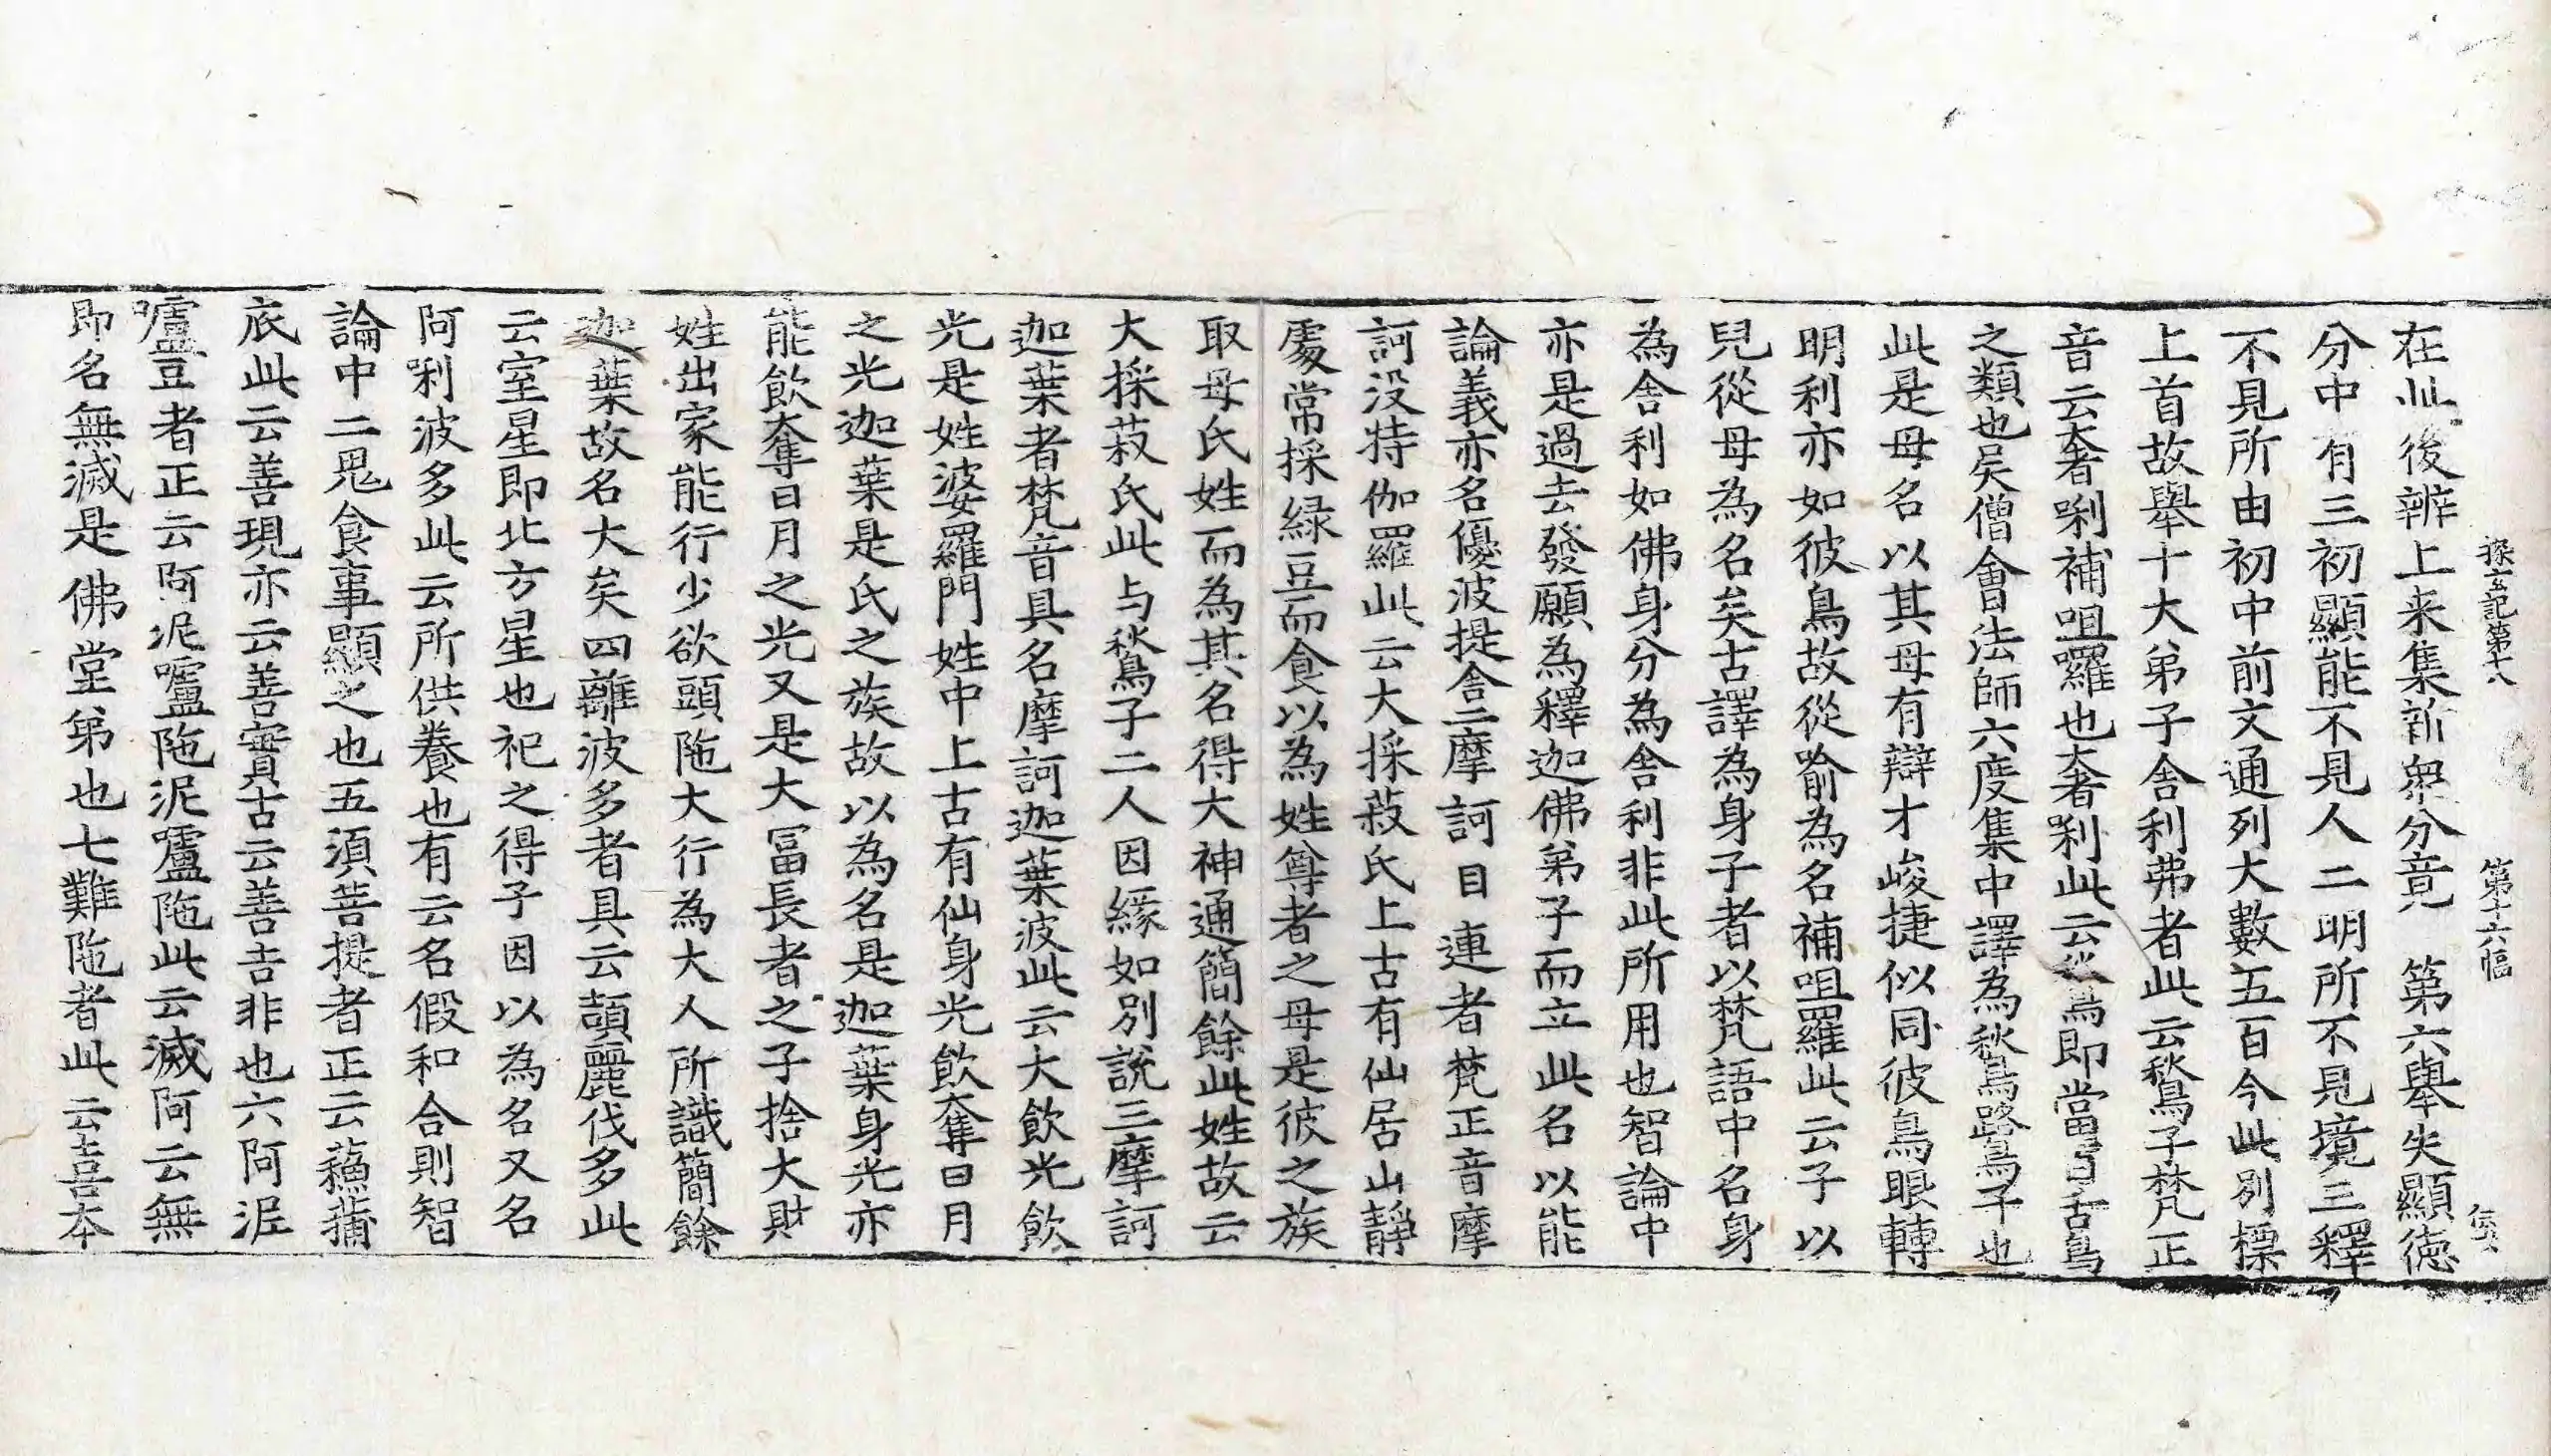 探玄記第十八 第十六幅
在此後辨上来集新衆分竟 第六舉失顯德
分中有三初顯能不見人二明所不見境三釋
不見所由初中前文通列大數五百今此別標
上首故舉十大弟子舍利弗者此云鶖鳥子梵正
音云奢唎補咀囉也奢利此云鶖鳥即當百舌鳥
之類也吴僧會法師六度集中譯為鶖鳥路鳥子也
此是母名以其母有辯才峻捷似同彼鳥眼轉
明利亦如彼鳥故從喻為名補咀羅此云子以
兒從母為名矣古譯為身子者以梵語中名身
為舍利如佛身分為舍利非此所用也智論中
亦是過去發願為釋迦佛弟子而立此名以能
論義亦名優波提舍二摩訶目連者梵正音摩
訶没特伽羅此云大採菽氏上古有仙居山靜
處常採緑豆而食以為姓尊者之母是彼之族
取母氏姓而為其名得大神通簡餘此姓故云
大採菽氏此与鶖鳥子二人因緣如別說三摩訶
迦葉者梵音具名摩訶迦葉波此云大飲光飲
光是姓婆羅門姓中上古有仙身光飲奪日月
之光迦葉是氏之族故以為名是迦葉身光亦
能飲奪日月之光又是大冨長者之子捨大財
姓出家能行少欲頭陁大行為大人所識簡餘
迦葉故名大矣四離波多者具云頡麗伐多此
云室星即北方星也祀之得子因以為名又名
阿唎波多此云所供養也有云名假和合則智
論中二鬼食事顯之也五湏菩提者正云蘓蒱
底此云善現亦云善實古云善吉非也六阿泥
嚧豆者正云阿泥嚧陁泥嚧陁此云滅阿云無
即名無滅是佛堂弟也七難陁者此云喜本